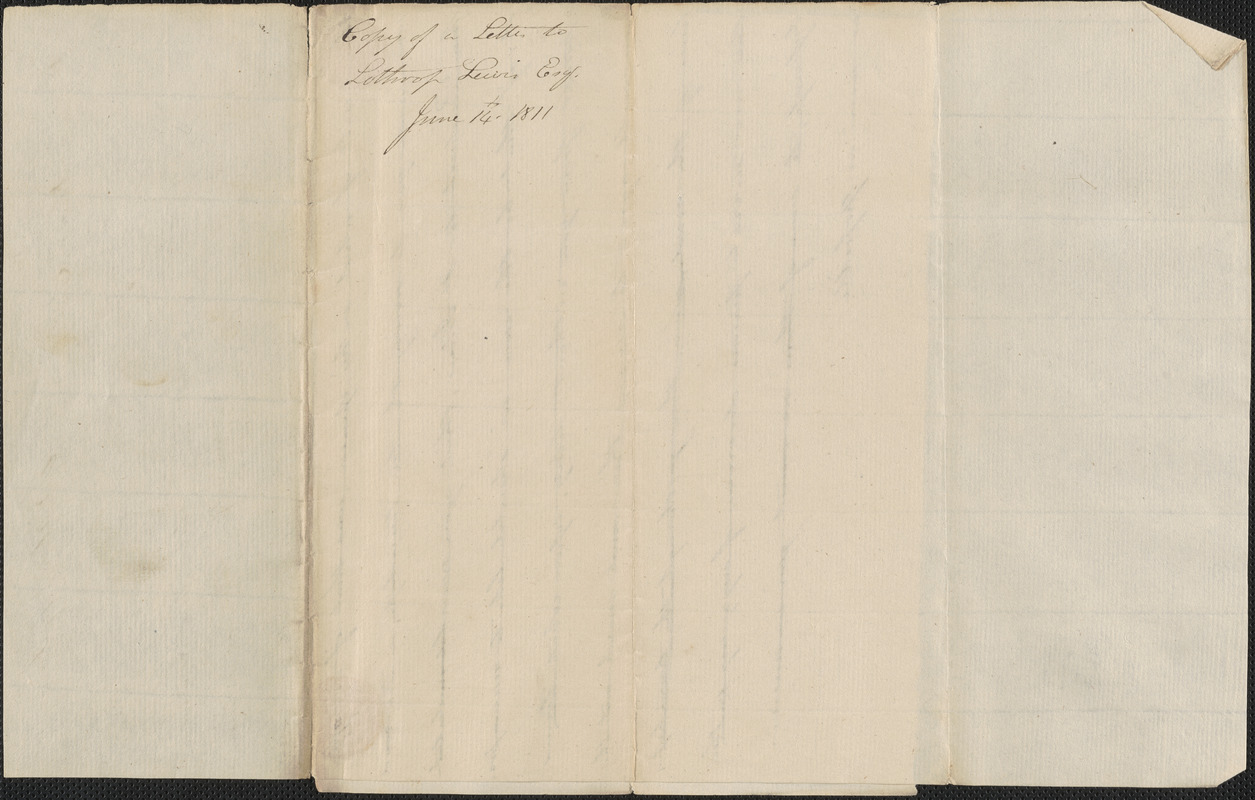 Copy of a Letter to
Lothrop Lewis Esq.
June 14th. 1811